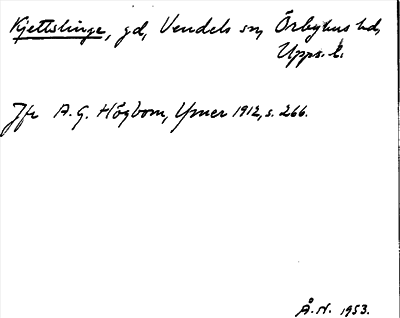 Kjettslinge, gd, Vendels sn, Örbyhus hd,
Upps. l.
Jfr A. G. Högbom, Ymer 1912, s. 266.
Å. N. 1953.